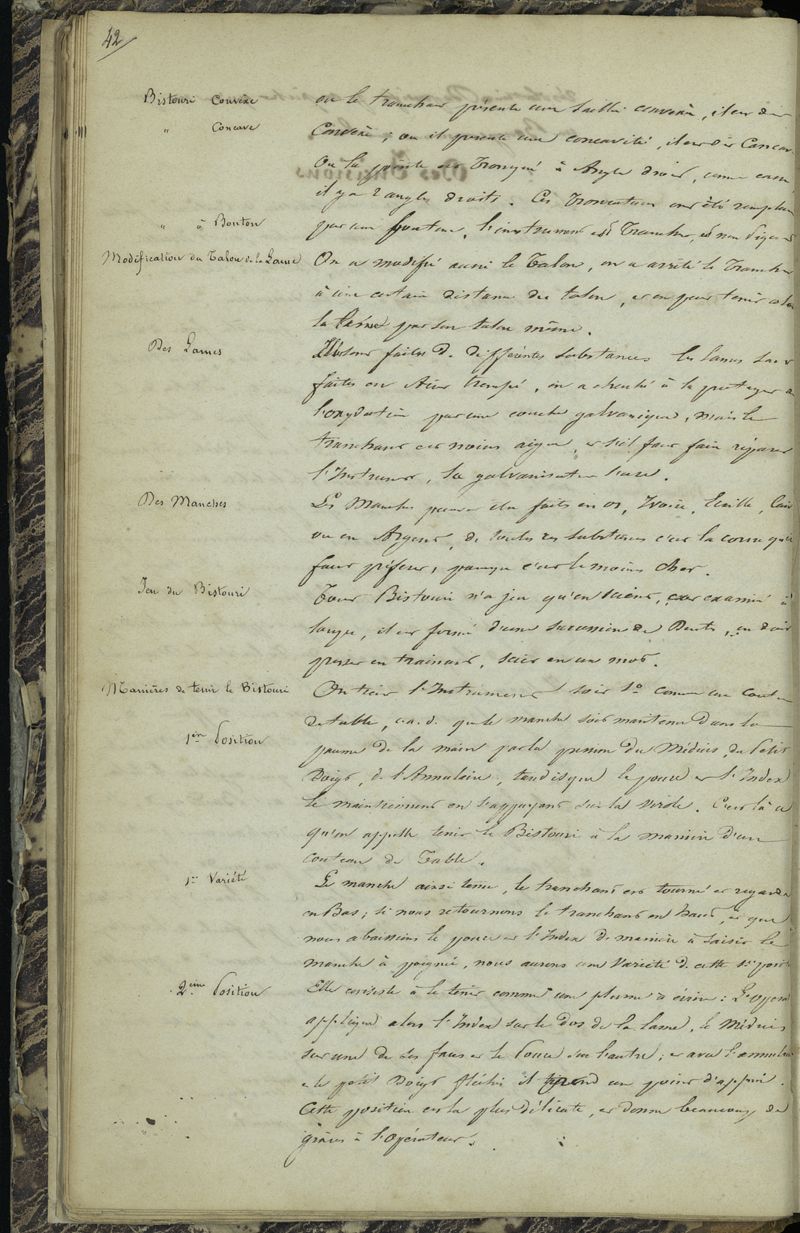 42
Bistouri Convexe
ou le tranchant présente une saillie convexe, il est dit
" Concave
Convexe ; ou il présente une concavité, il est dit Concave
Ou la pointe est tronquée à Angle droit, comme
il y a 2 angles droits. Ces Troncatures ont été
" à Bouton
par un bouton, l'instrument est Tranchant, et non piquant
Modification du Talon de la Lame
On a modifié aussi le Talon, on a arrêté le Tranchant
à une certaine distance du talon, et on peut tenir
la Lame par son talon même.
Des Lames
Elles sont faites de différentes substances les lames sont
faites en Acier trempé, on a cherché à le protéger de
l'oxydation par une couche galvanique, mais le
tranchant est moins aigu, et s'il faut faire réparer
l'Instrument, la galvanisation
Des Manches
Les Manches peuvent être faits en os, Ivoire, Ecaille,
ou en Argent, de toutes ces substances c'est la corne qu'il
faut préférer, parce que c'est le moins cher.
Jeu du Bistouri
Tout Bistouri n'a jeu qu'en sciant, car examiné à
loupe, il est formé d'une succession de Dents, on doit
presser en trainant, scier en un mot.
Manières de tenir le Bistouri
On tient l'Instrument soit 1º comme un couteau
de table, c.a.d. que le manche soit maintenu dans la
1ère Position
paume de la main par la pression du Médius, du Petit
Doigt, de l'Annulaire, tandisque le pouce et l'Index
le maintiennent en s'appuyant sur la virole. C'est là ce
qu'on appelle tenir le Bistouri à la manière d'un
couteau de Table.
1re Variété
Le manche ainsi tenu, le tranchant est tourné et regarde
en Bas ; si nous retournons le tranchant en haut, et que
nous abaissions le pouce et l'Index de manière à saisir le
manche à poignée, nous aurons une Variété de cette 1re posit
2ème Position
Elle consiste à le tenir comme une plume à écrire : L'opéra
applique alors l'Index sur le dos de la lame, le Médius
sur une de ses faces et le Pouce sur l'autre ; et avec l'annulaire
et le petit Doigt fléchi il prend un point d'appui.
Cette position est la plus délicate, et donne beaucoup de
grâces à l'Opérateur.